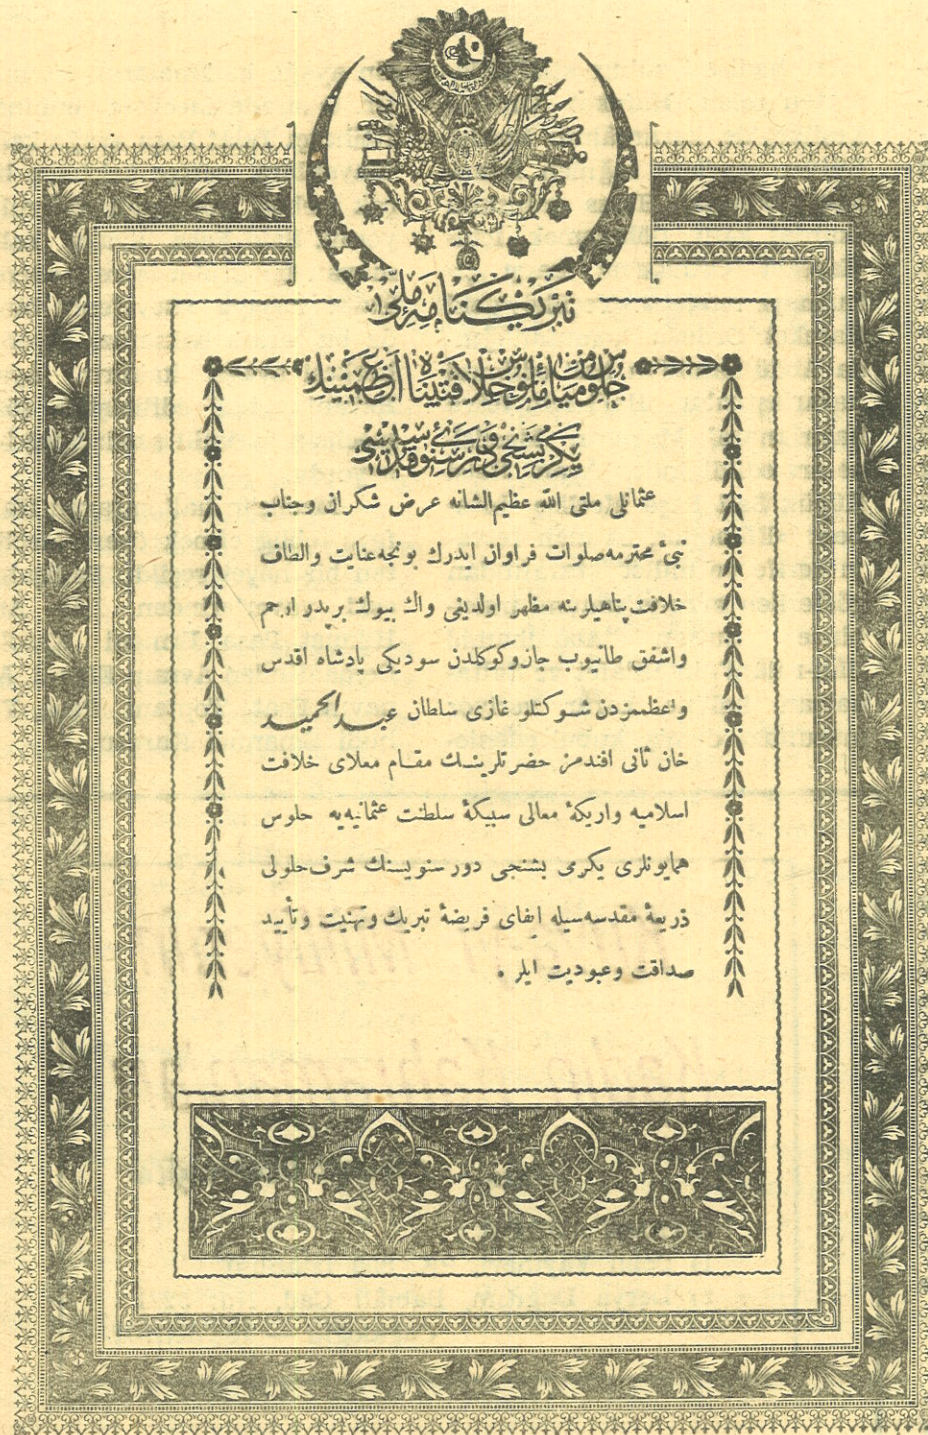 تبريكنامهٔ ملی
جلوس ميامن مأنوس خلافتپناه اعظمينك
يكرمی بشنجی دور سنوئ قدسيسی
عثمانلی ملتی الله عظيم‌الشانه عرض شكران وجناب
نبیٔ محترمه صلوات فراوان ايدرك بونجه عنايت والطاف
خلافت‌پناهيلرينه مظهر اولدينی واك بيوك بر پدر ارحم
واشفق طانيوب جان وكوكلدن سوديكی پادشاه اقدس
واعظممزدن شوكتلو غازی سلطان عبدالحميد
خان ثانی افندمز حضرتلرينك مقام معلای خلافت
اسلاميه واريكهٔ معالی سبيكهٔ سلطنت عثمانيه‌يه جلوس
همايونلری يكرمی بشنجی دور سنويسنك شرف حلولی
ذريعهٔ مقدسه‌سيله ايفای فريضهٔ تبريك وتهنيت وتأييد
صداقت وعبوديت ايلر .